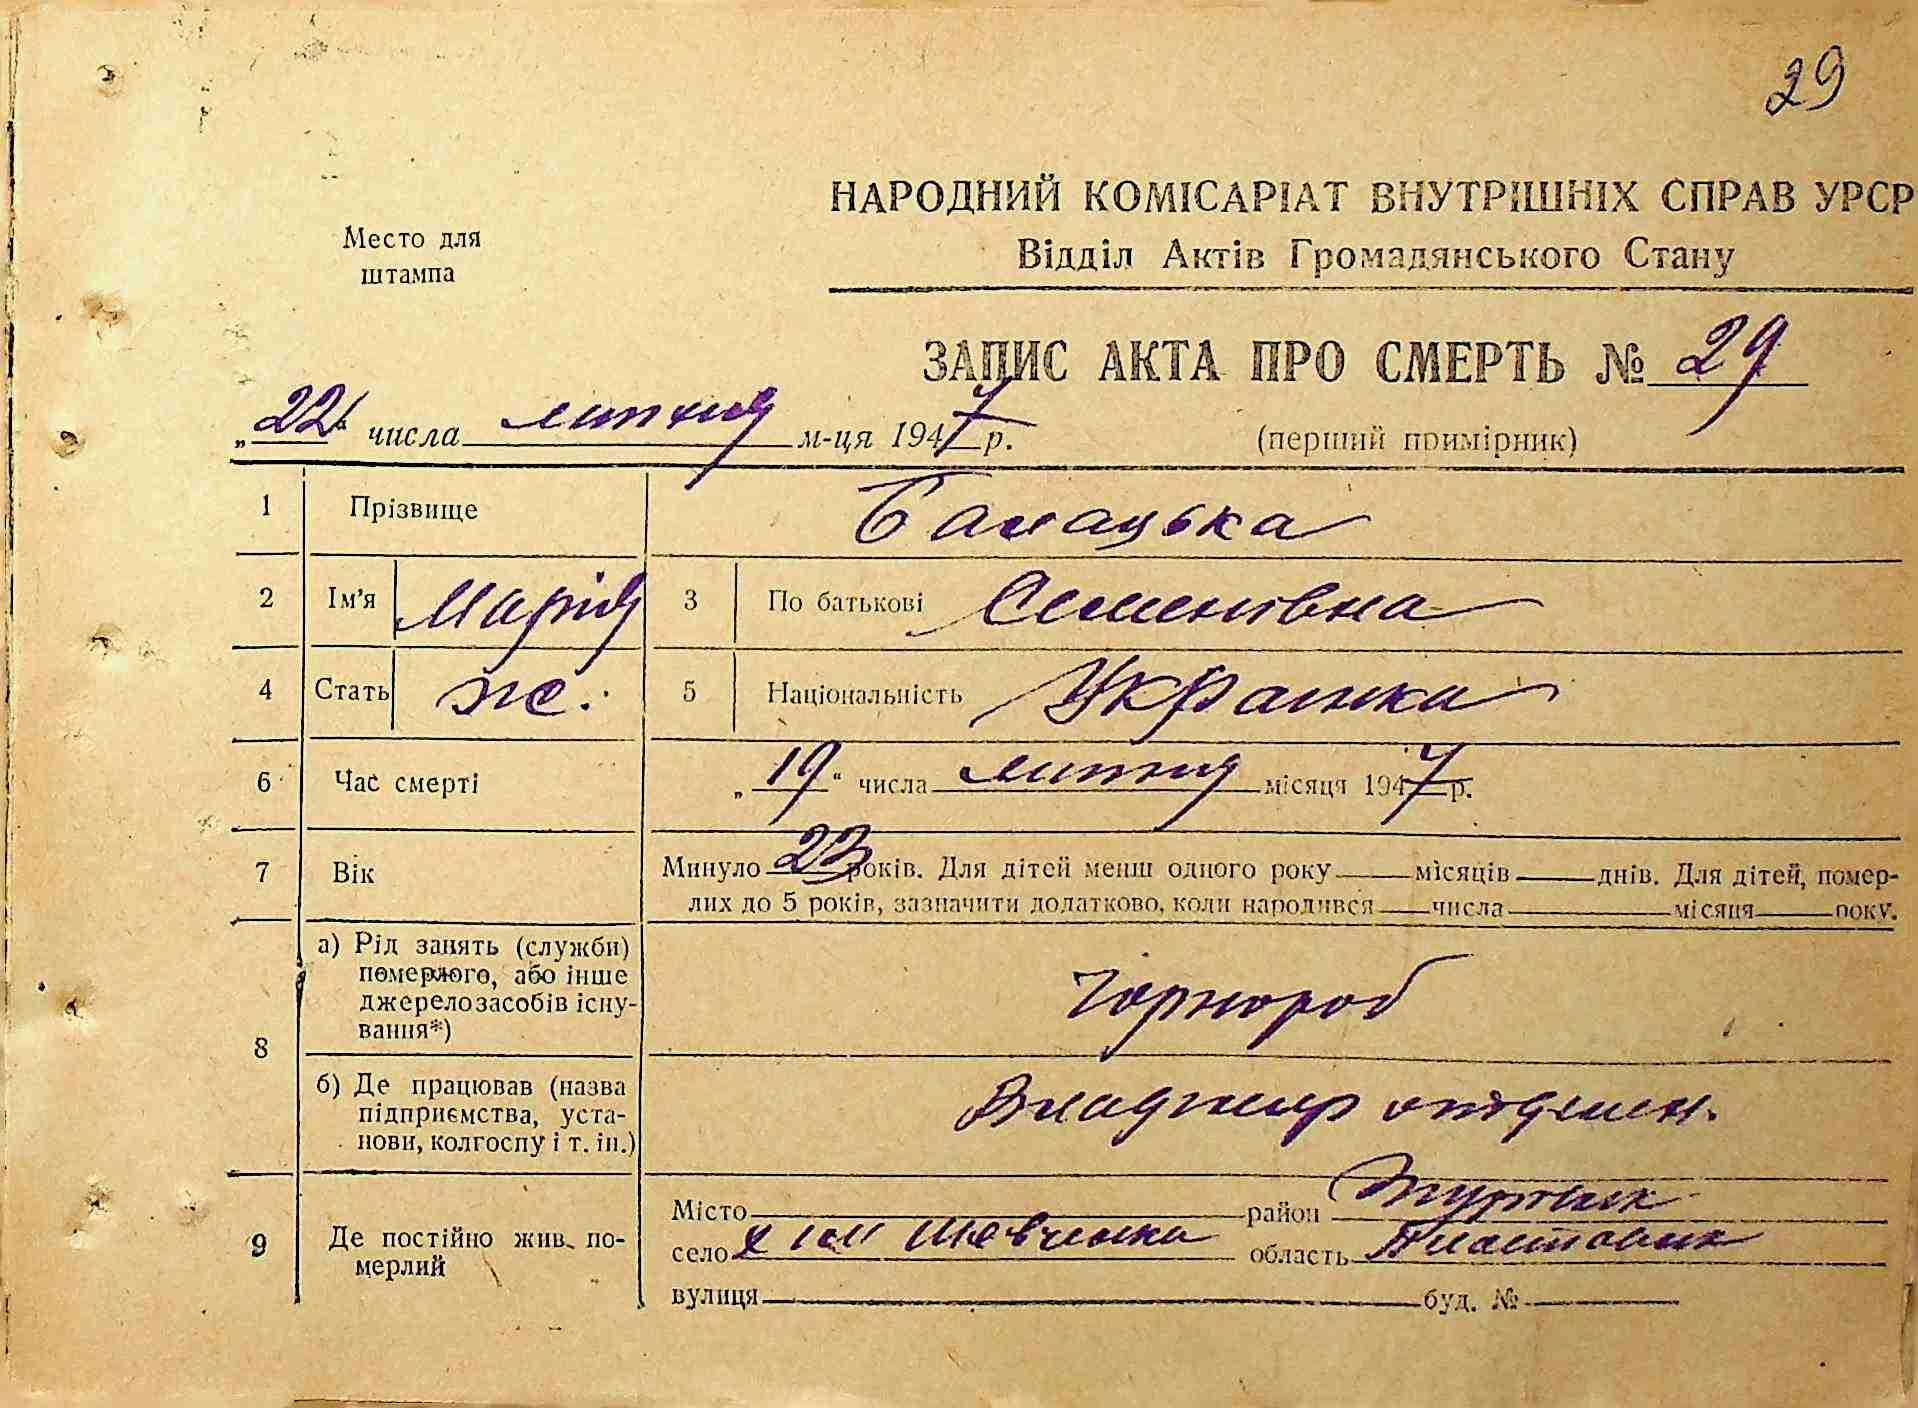 29
НАРОДНИЙ КОМІСАРІАТ ВНУТРІШНІХ СПРАВ УРСР
Место для
штампа
Відділ Актів Громадянського Стану
ЗАПИС АКТА ПРО СМЕРТЬ № 29
„22“ числа липня м-ця 1947 р. (перший примірник)
1 Прізвище Балацька
2 Ім'я Марія 3 По батькові Семенівна
4 Стать жіс. 5 Національність Українка
6 Час смерті „19“ числа липня місяця 1947 р.
7 Вік Минуло 23 років. Для дітей менш одного року місяців днів. Для дітей, помер-
лих до 5 років, зазначити додатково, коли народився числа місяця року.
8 а) Рід занять (служби)
померлого, або інше
джерело засобів існу-
вання*)
Чорнороб
б) Де працював (назва
підприємства, уста-
нови, колгоспу і т. ін.)
9 Де постійно жив по-
мерлий
Місто район
село х ім Шевченка область
вулиця буд. №